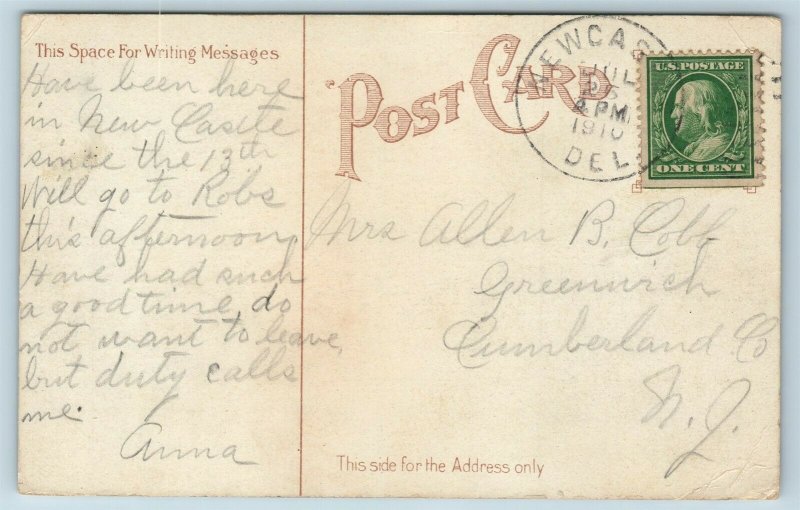 This Space For Writing Messages
Have been here
in New Castle
since the 13th
Will go to Robs
this afternoon
Have had such
a good time do
not want to leave,
but duty calls
me.
Anna
POST CARD
NEWCAS
JUL
4 PM
1910
DEL.
U.S. POSTAGE
ONE CENT
Mrs Allen B. Cobb
Greenwich
Cumberland Co
N. J.
This side for the Address only